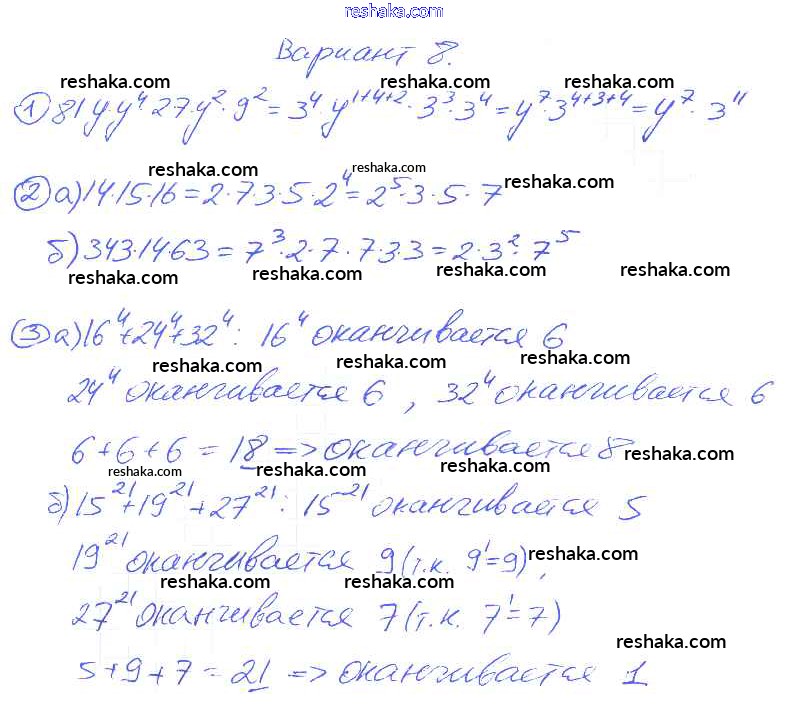 reshaka.com
Вариант 8.
reshaka.com reshaka.com reshaka.com
① 81y·y⁴·27·y²·9² = 3⁴·y¹⁺⁴⁺²·3³·3⁴ = y⁷·3⁴⁺³⁺⁴ = y⁷·3¹¹
reshaka.com reshaka.com reshaka.com
② а) 14·15·16 = 2·7·3·5·2⁴ = 2⁵·3·5·7
б) 343·14·63 = 7³·2·7·7·3·3 = 2·3²·7⁵
reshaka.com reshaka.com reshaka.com reshaka.com
③ а) 16⁴+24⁴+32⁴: 16⁴ оканчивается 6
reshaka.com reshaka.com reshaka.com
24⁴ оканчивается 6, 32⁴ оканчивается 6
6+6+6 = 18 => оканчивается 8
reshaka.com reshaka.com reshaka.com
б) 15²¹+19²¹+27²¹: 15²¹ оканчивается 5
19²¹ оканчивается 9 (т.к. 9¹=9),
reshaka.com reshaka.com reshaka.com
27²¹ оканчивается 7 (т.к. 7¹=7)
reshaka.com
5+9+7 = 21 => оканчивается 1